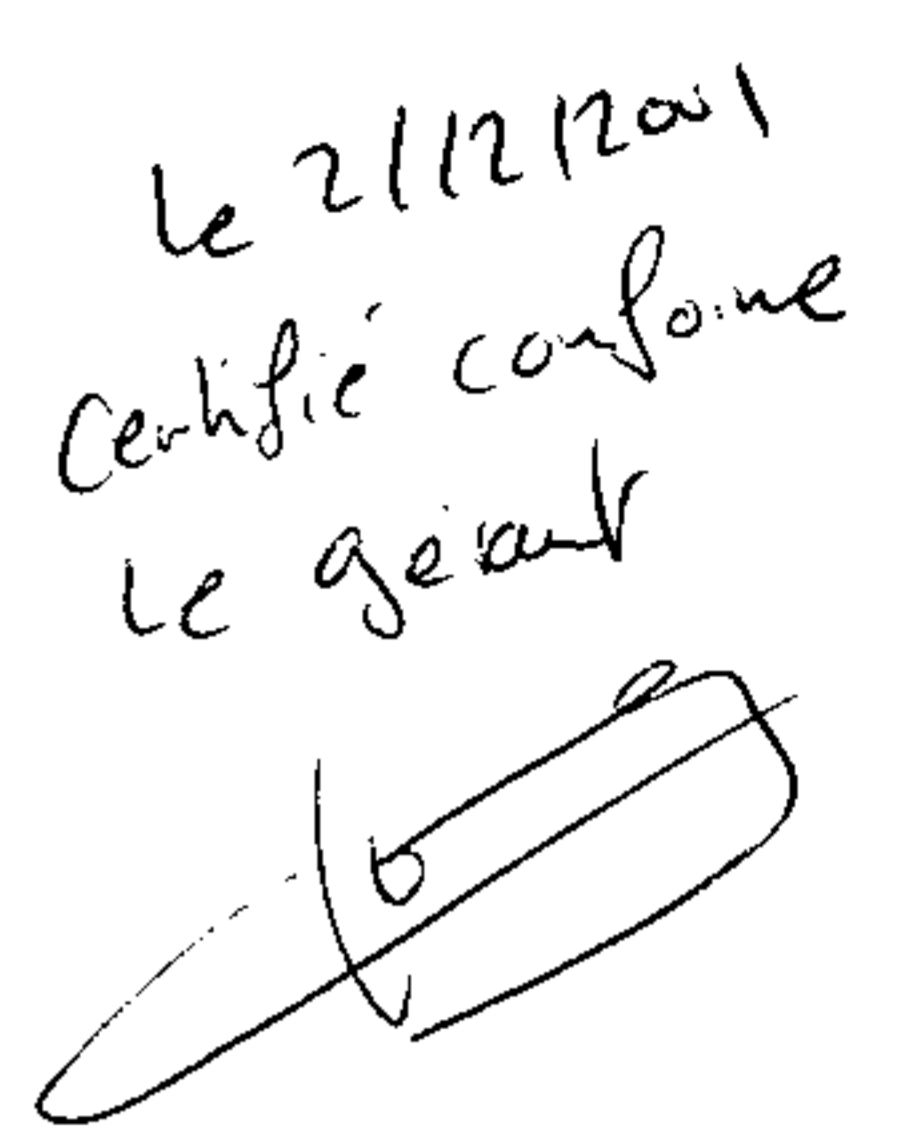 le 2/12/2001
Certifié conforme
le gérant